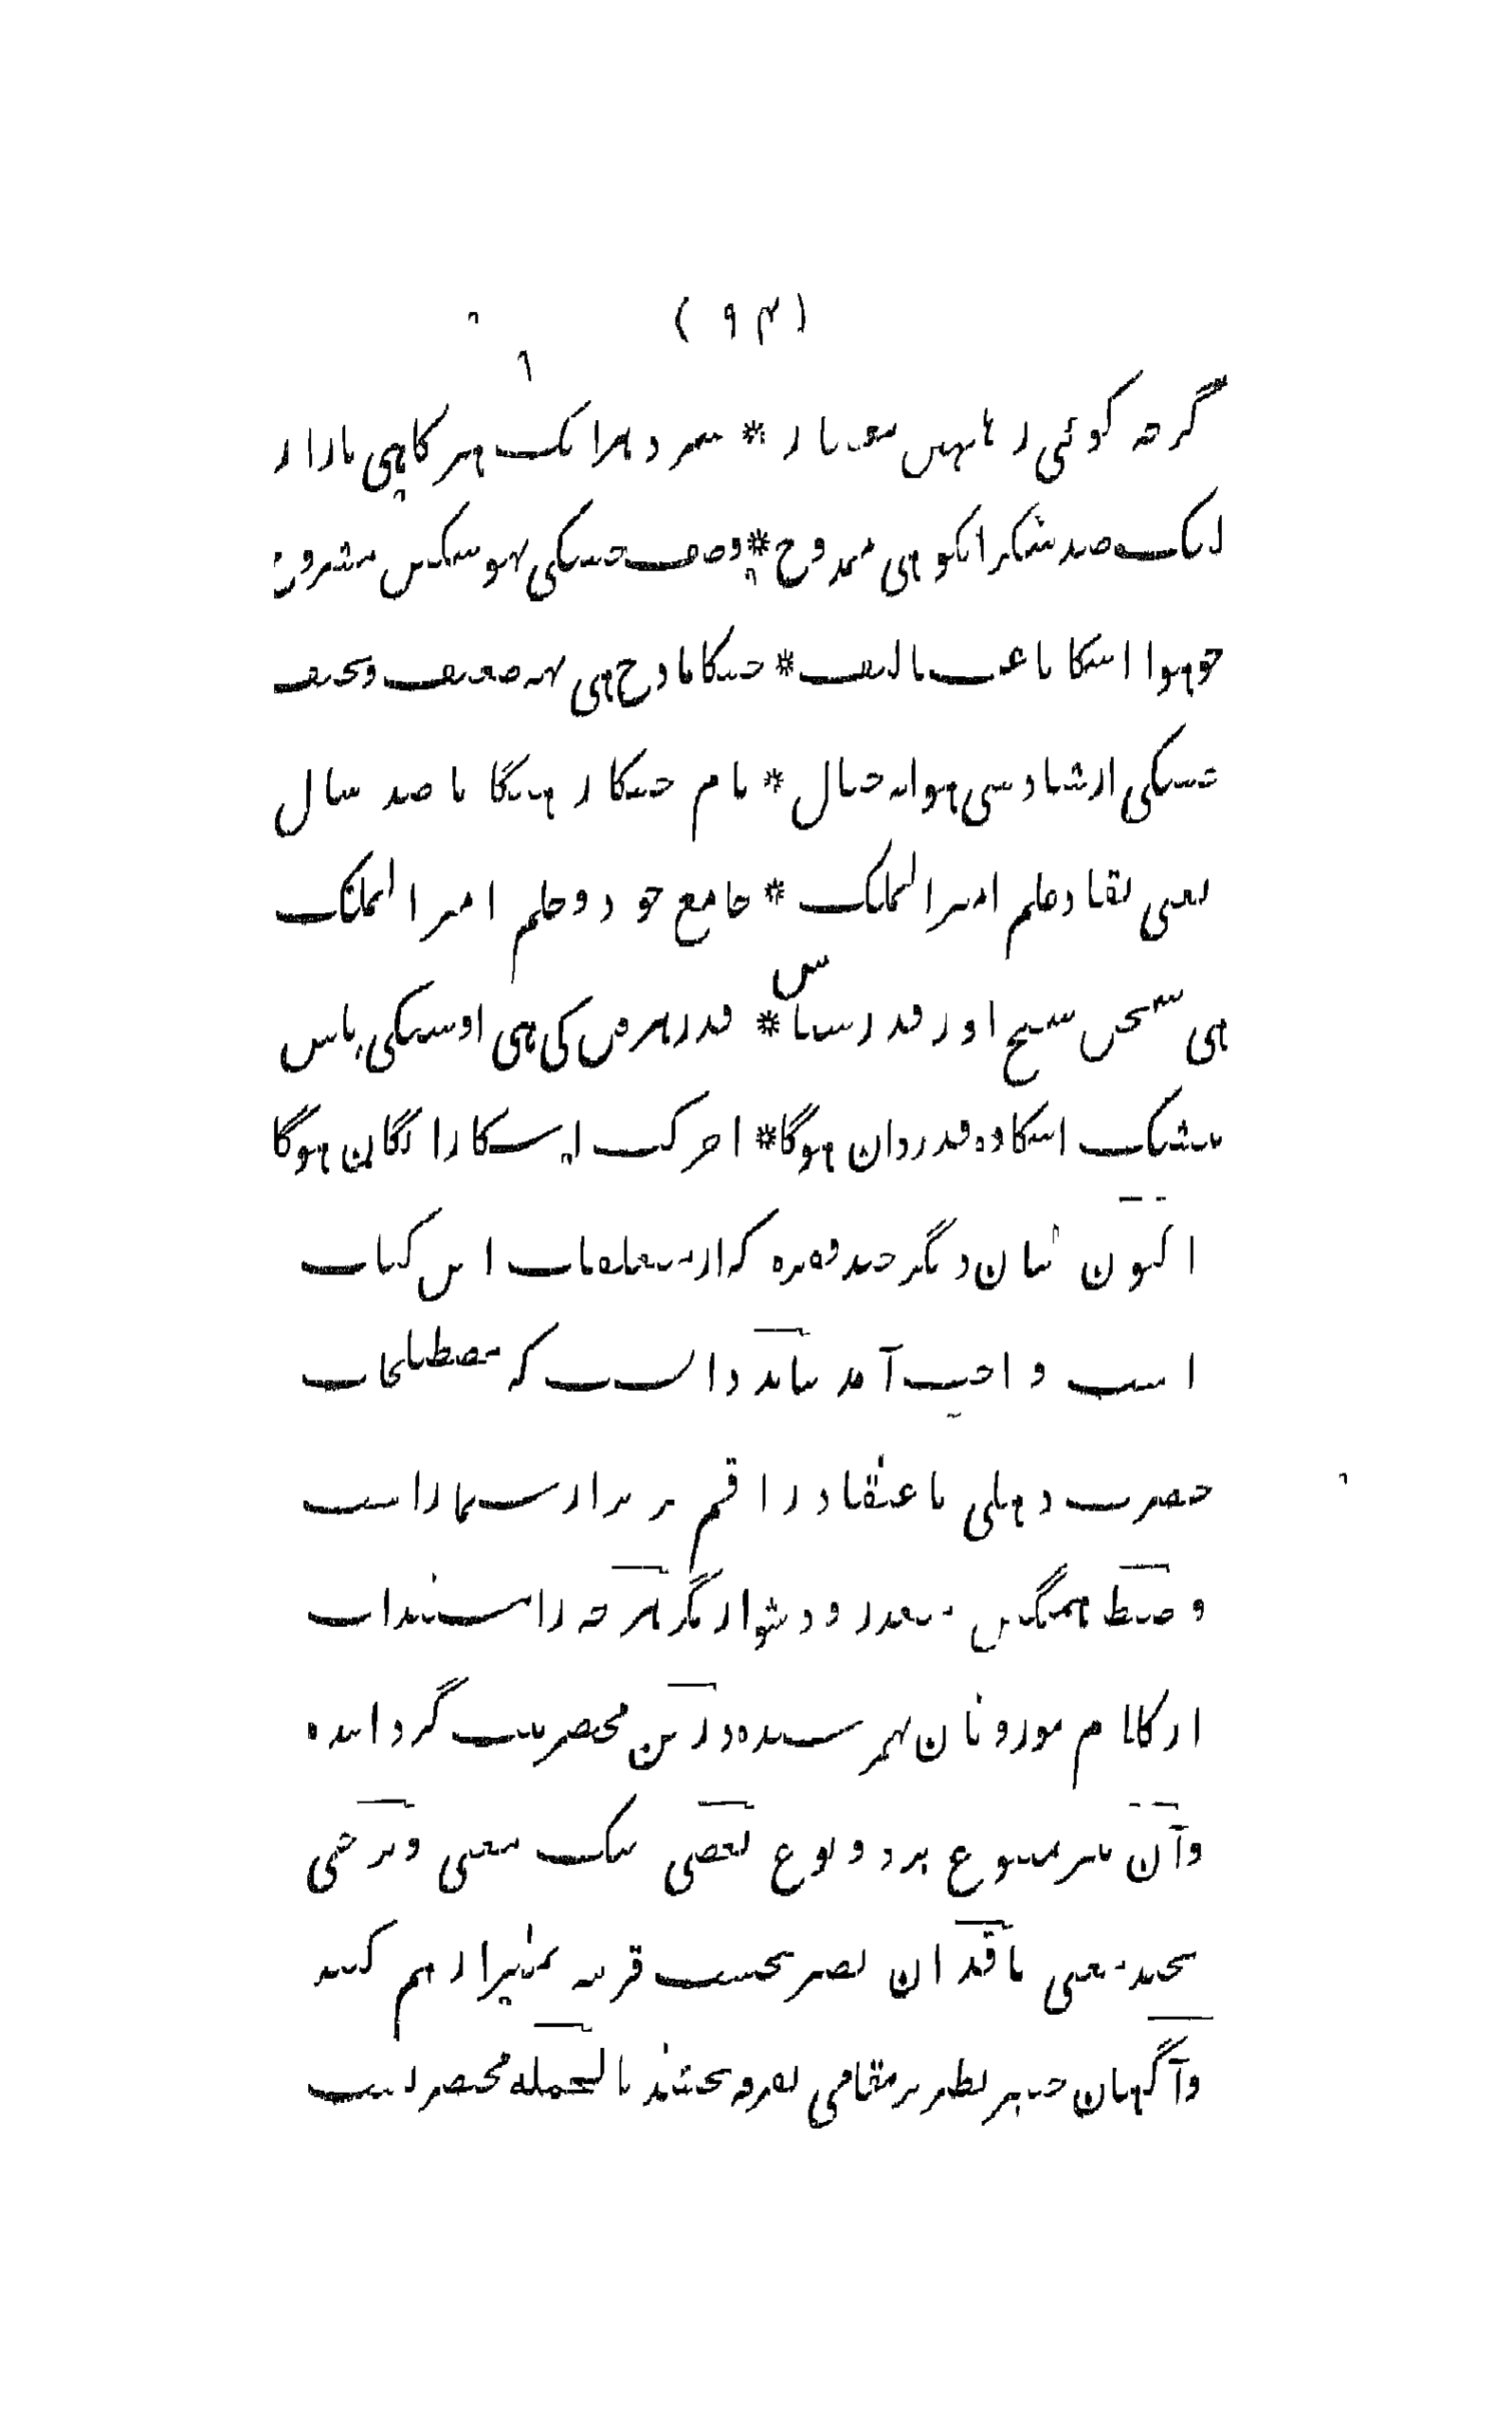 ( ۹۴ )
گرچہ کوئی رہا نہیں معیار * سرد ہر ایک ہنر کا ہی بازار
لیک صد شکر ایکو ہی ممدوح * وصف جسکی نہو سکیں مشروح
جو ہوا اسکا باعث تالیف * جسکا مادح ہی یہہ ضعیف و نحیف
جسکی ارشاد سی ہوا یہ خیال * نام جسکا رہیگا تا صد سال
یعنی نقاد علم امیر الملک * جامع جود و حلم امیر الملک
ہی سخن سنج اور قدر شناس * قدر ہر فن کی ہی اوسیکی پاس
بیشک اسکا وہ قدردان ہوگا * اجر کب اسکا رائگان ہوگا
اکنون بیان دیگر چند فقرہ کہ از متعلقات این کتاب
است واجب آمد باید دانست کہ مصطلحات
حضرت دہلی باعتقاد راقم بر تر از شمار است
و ضبط ہمگیں متعذر و دشوار مگر ہرچہ را سند ات
از کلام موزونان بہم رسیدہ درین مختصر ثبت گردانیدہ
و آن نیز متنوع بر دو نوع بعضی بیک معنی و برخی
بچند معنی با قید آن بصر بحسب قرینہ تمئیز از ہم کنند
و آگہان خبیر بنظر بر مقامی تفرقہ بخشند بالجملہ مختصر نیست